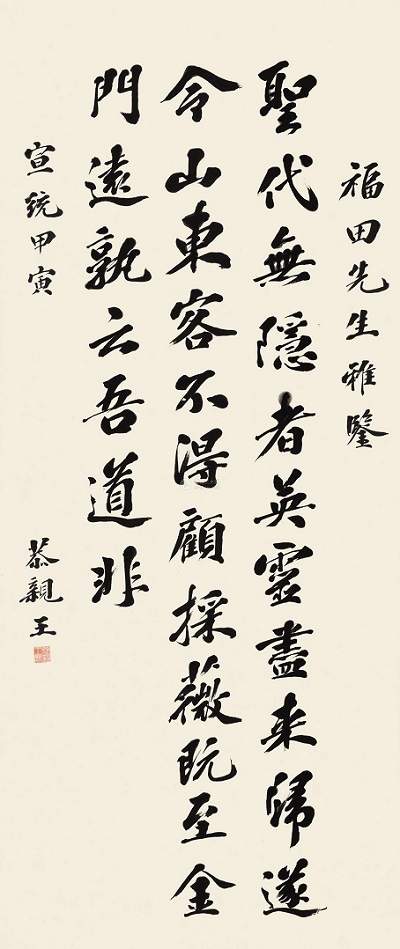 福田先生雅鑒
聖代無隱者英靈盡来歸遂
令山東客不得顧採薇既至金
門遠孰云吾道非
宣統甲寅
恭親王